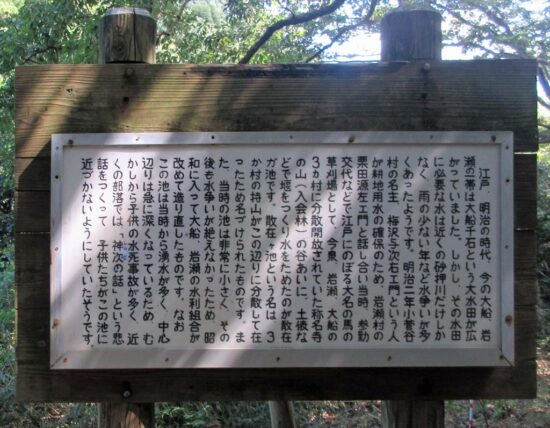 江戸、明治の時代、今の大船、岩
瀬の一帯は大船千石という大水田が広
がっていました。しかし、その水田
に必要な水は近くの砂押川だけしか
なく、雨の少ない年など水争いが多
くあったようです。明治二年小菅谷
村の名主、梅沢与次右エ門という人
が耕地用水の確保のため、岩瀬村の
栗田源左エ門と話し合い当時、参勤
交代などで江戸にのぼる大名の馬の
草刈場として、今泉、岩瀬、大船の
3ヵ村に分散開放されていた称名寺
の山(入会林)の谷あいに、土俵な
どで堰をつくり水をためたのが散在
ガ池です。散在ヶ池という名は、3
か村の持山がこの辺りに分散して在
ったため名づけられたものです。ま
た、当時の池は非常に小さく、その
後も水争いが絶えなかったため、昭
和に入って大船、岩瀬の水利組合が
改めて造り直したものです。なお
この池は当時から湧水が多く、中心
辺りは急に深くなっているため、む
かしから子供の水死事故が多く、近
くの部落では、「神次の話」という悲
話をつくって、子供たちがこの池に
近づかないようにしていたそうです。